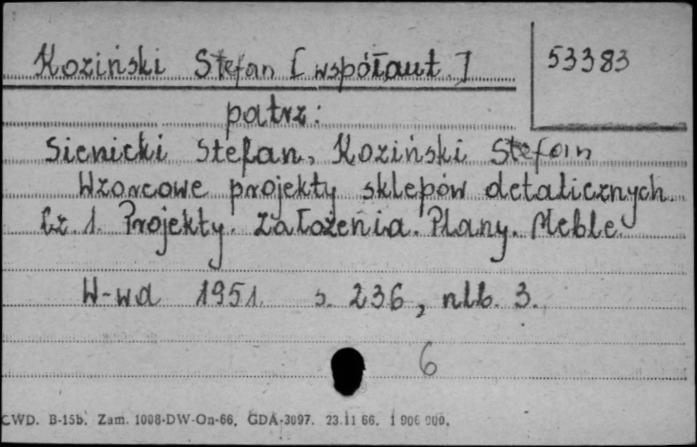 Koziński Stefan [współaut.] 53383
patrz:
Sienicki Stefan, Koziński Stefan
Wzorcowe projekty sklepów detalicznych.
Cz. 1. Projekty. Założenia. Plany. Meble.
W-wa 1951. s. 236, nlb. 3.
6
CWD. B-15b. Zam. 1008-DW-On-66. GDA-3097. 23.11 66. 1 906 000.